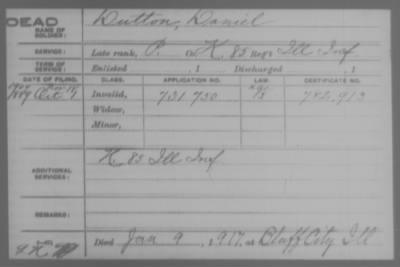 DEAD
NAME OF SOLDIER: Dutton, Daniel
SERVICE: Late rank, P. Co. K, 85 Reg't Ill Inf
TERM OF SERVICE: Enlisted , 1 Discharged , 1
DATE OF FILING. CLASS. APPLICATION NO. LAW. CERTIFICATE NO.
Oct 7 Invalid, 731 750 782,913
Widow,
Minor,
ADDITIONAL SERVICES: K. 85 Ill Inf
REMARKS:
Died Jan 9, 1917, at Bluff City Ill